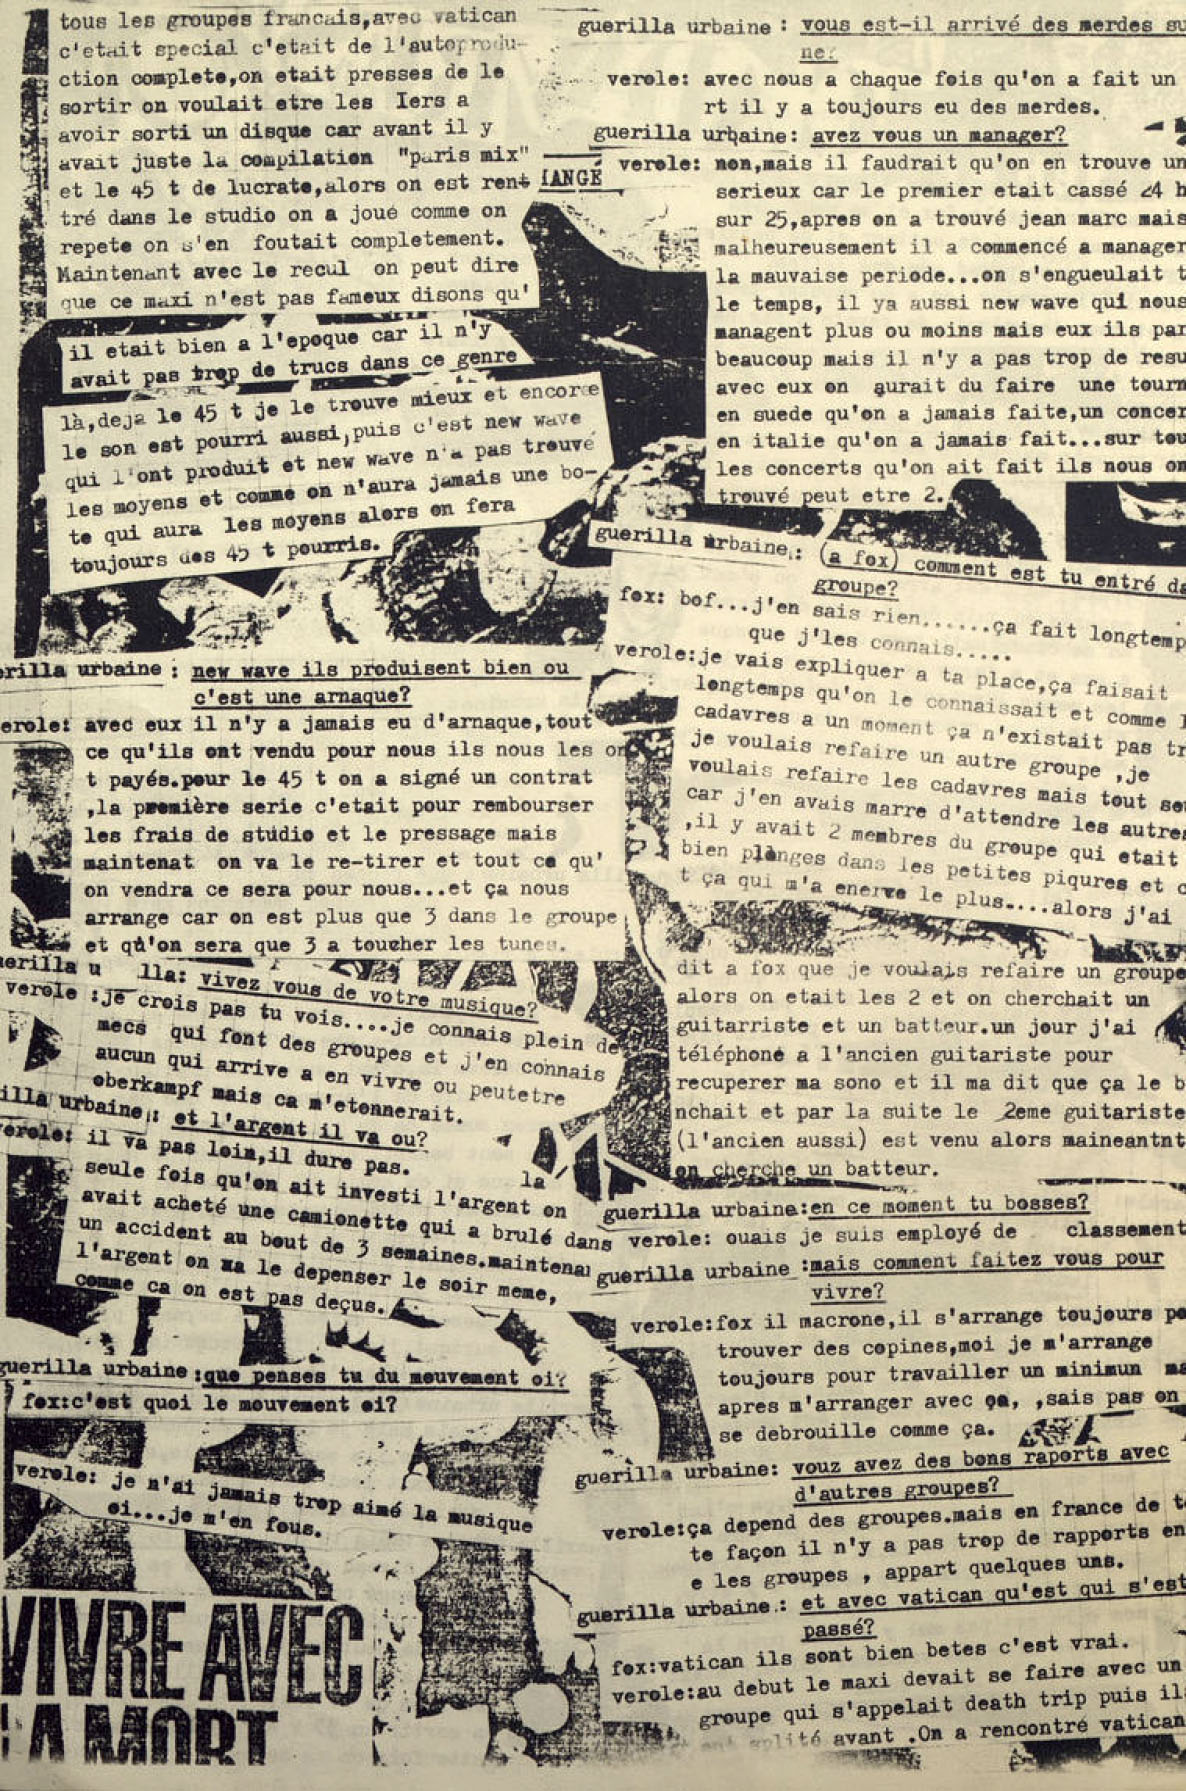 tous les groupes francais,avec vatican
c'etait special c'etait de l'autoprodu-
ction complete,on etait presses de le
sortir on voulait etre les Iers a
avoir sorti un disque car avant il y
avait juste la compilation "paris mix"
et le 45 t de lucrate,alors on est rent
tré dans le studio on a joué comme on
repete on s'en foutait completement.
Maintenant avec le recul on peut dire
que ce maxi n'est pas fameux disons qu'
il etait bien a l'epoque car il n'y
avait pas trop de trucs dans ce genre
là,deja le 45 t je le trouve mieux et encore
le son est pourri aussi,puis c'est new wave
qui l'ont produit et new wave n'a pas trouvé
les moyens et comme on n'aura jamais une bo-
te qui aura les moyens alors on fera
toujours des 45 t pourris.
erilla urbaine : new wave ils produisent bien ou
c'est une arnaque?
erole: avec eux il n'y a jamais eu d'arnaque,tout
ce qu'ils ont vendu pour nous ils nous les on
t payés.pour le 45 t on a signé un contrat
,la première serie c'etait pour rembourser
les frais de studio et le pressage mais
maintenat on va le re-tirer et tout ce qu'
on vendra ce sera pour nous...et ça nous
arrange car on est plus que 3 dans le groupe
et qu'on sera que 3 a toucher les tunes.
uerilla u lla: vivez vous de votre musique?
verole :je crois pas tu vois....je connais plein de
mecs qui font des groupes et j'en connais
aucun qui arrive a en vivre ou peutetre
oberkampf mais ca m'etonnerait.
illa urbaine: et l'argent il va ou?
verole: il va pas loin,il dure pas.
la
seule fois qu'on ait investi l'argent on
avait acheté une camionette qui a brulé dans
un accident au bout de 3 semaines.maintenan
l'argent on va le depenser le soir meme,
comme ca on est pas deçus.
guerilla urbaine :que penses tu du mouvement oi?
fox:c'est quoi le mouvement oi?
verole: je n'ai jamais trop aimé la musique
oi...je m'en fous.
VIVRE AVEC
LA MORT
guerilla urbaine : vous est-il arrivé des merdes su
ne?
verole: avec nous a chaque fois qu'on a fait un
rt il y a toujours eu des merdes.
guerilla urbaine: avez vous un manager?
IANGÉ
verole: non,mais il faudrait qu'on en trouve un
serieux car le premier etait cassé 24 h
sur 25,apres on a trouvé jean marc mais
malheureusement il a commencé a manager
la mauvaise periode...on s'engueulait t
le temps, il ya aussi new wave qui nous
managent plus ou moins mais eux ils par
beaucoup mais il n'y a pas trop de resu
avec eux on aurait du faire une tourn
en suede qu'on a jamais faite,un concer
en italie qu'on a jamais fait...sur tou
les concerts qu'on ait fait ils nous on
trouvé peut etre 2.
guerilla urbaine: (a fox) comment est tu entré da
groupe?
fox: bof...j'en sais rien......ça fait longtemp
que j'les connais.....
verole:je vais expliquer a ta place,ça faisait
longtemps qu'on le connaissait et comme l
cadavres a un moment ça n'existait pas tr
je voulais refaire un autre groupe ,je
voulais refaire les cadavres mais tout se
car j'en avais marre d'attendre les autres
,il y avait 2 membres du groupe qui etait
bien plonges dans les petites piqures et c
t ça qui m'a enerve le plus....alors j'ai
dit a fox que je voulais refaire un groupe
alors on etait les 2 et on cherchait un
guitarriste et un batteur.un jour j'ai
téléphoné a l'ancien guitariste pour
recuperer ma sono et il ma dit que ça le b
nchait et par la suite le 2eme guitariste
(l'ancien aussi) est venu alors maineantnt
on cherche un batteur.
guerilla urbaine:en ce moment tu bosses?
verole: ouais je suis employé de classement
guerilla urbaine :mais comment faitez vous pour
vivre?
verole:fox il macrone,il s'arrange toujours po
trouver des copines,moi je m'arrange
toujours pour travailler un minimun ma
apres m'arranger avec ça, ,sais pas on
se debrouille comme ça.
guerilla urbaine: vouz avez des bons raports avec
d'autres groupes?
verole:ça depend des groupes.mais en france de t
te façon il n'y a pas trop de rapports en
e les groupes , appart quelques uns.
guerilla urbaine.: et avec vatican qu'est qui s'est
passé?
fox:vatican ils sont bien betes c'est vrai.
verole:au debut le maxi devait se faire avec un
groupe qui s'appelait death trip puis il
splité avant .On a rencontré vatican